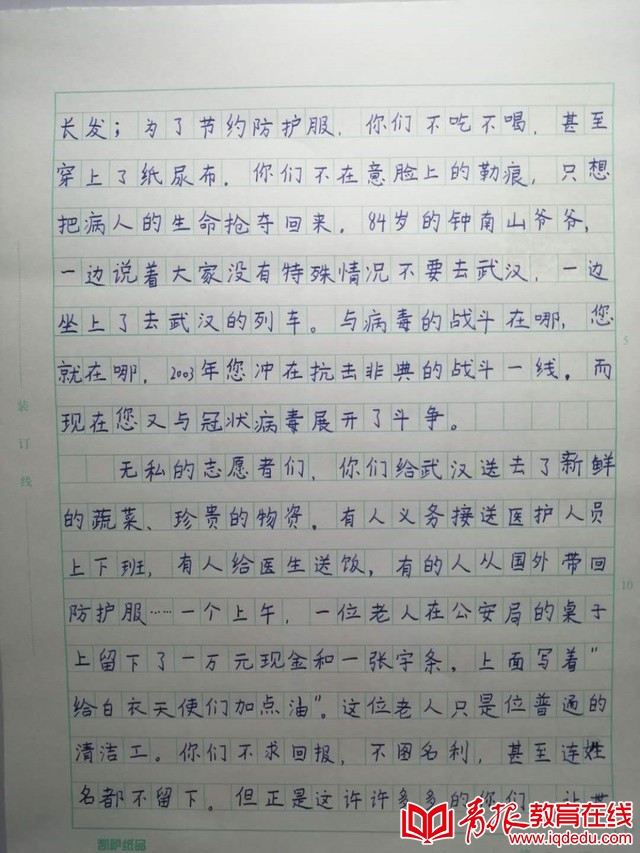 长发；为了节约防护服，你们不吃不喝，甚至
穿上了纸尿布。你们不在意脸上的勒痕，只想
把病人的生命抢夺回来。84岁的钟南山爷爷，
一边说着大家没有特殊情况不要去武汉，一边
坐上了去武汉的列车。与病毒的战斗在哪，您
就在哪，2003年您冲在抗击非典的战斗一线。而
现在您又与冠状病毒展开了斗争。
无私的志愿者们，你们给武汉送去了新鲜
的蔬菜、珍贵的物资。有人义务接送医护人员
上下班，有人给医生送饭，有的人从国外带回
防护服……一个上午，一位老人在公安局的桌子
上留下了一万元现金和一张字条，上面写着"
给白衣天使们加点油"。这位老人只是位普通的
清洁工。你们不求回报，不图名利，甚至连姓
名都不留下。但正是这许许多多的你们，让
装订线
5
10
青报教育在线
www.iqdedu.com